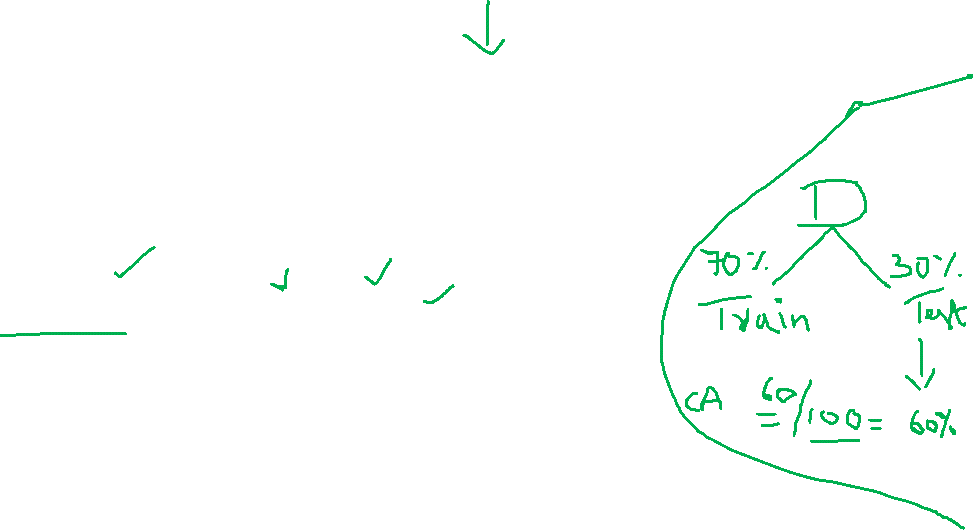 D
70% 30%
Train Test
CA 60/100 = 60%